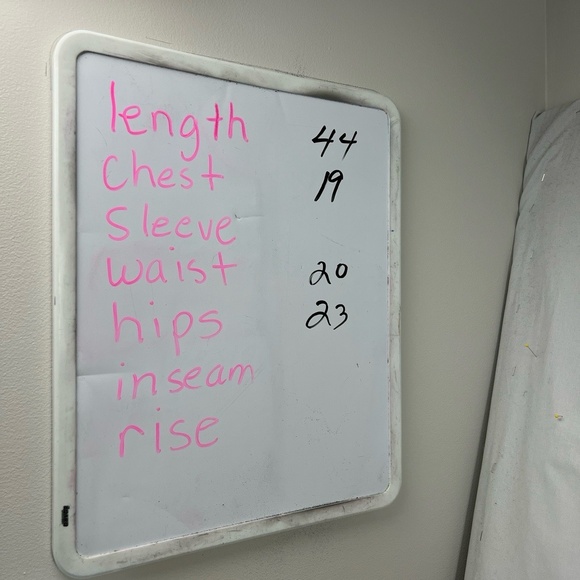 length 44
Chest 19
Sleeve
waist 20
hips 23
inseam
rise